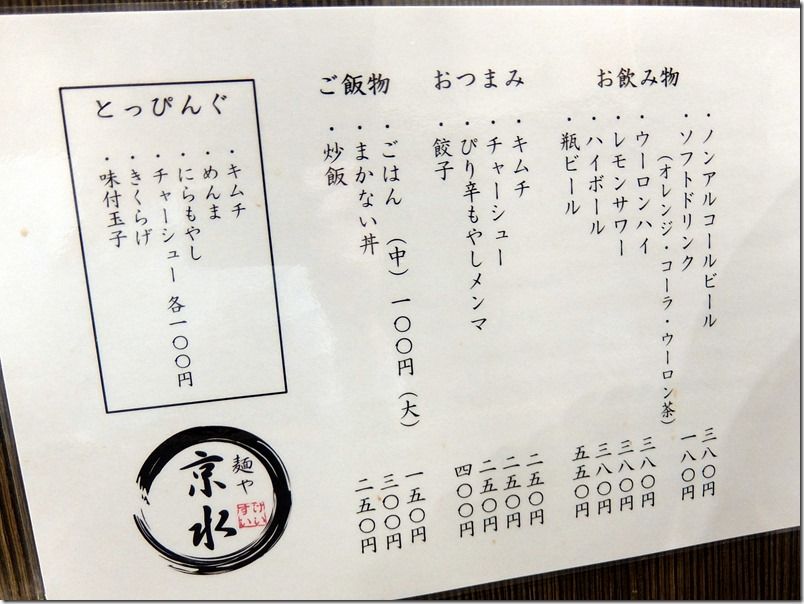 お飲み物
・ノンアルコールビール 三八〇円
・ソフトドリンク 一八〇円
（オレンジ・コーラ・ウーロン茶）
・ウーロンハイ 三八〇円
・レモンサワー 三八〇円
・ハイボール 三八〇円
・瓶ビール 五五〇円
おつまみ
・キムチ 二五〇円
・チャーシュー 二五〇円
・ぴり辛もやしメンマ 二五〇円
・餃子 四〇〇円
ご飯物
・ごはん （中）一〇〇円 （大） 一五〇円
・まかない丼 三〇〇円
・炒飯 二五〇円
とっぴんぐ
・キムチ
・めんま
・にらもやし
・チャーシュー 各一〇〇円
・きくらげ
・味付玉子
麺や
京水
けいすい